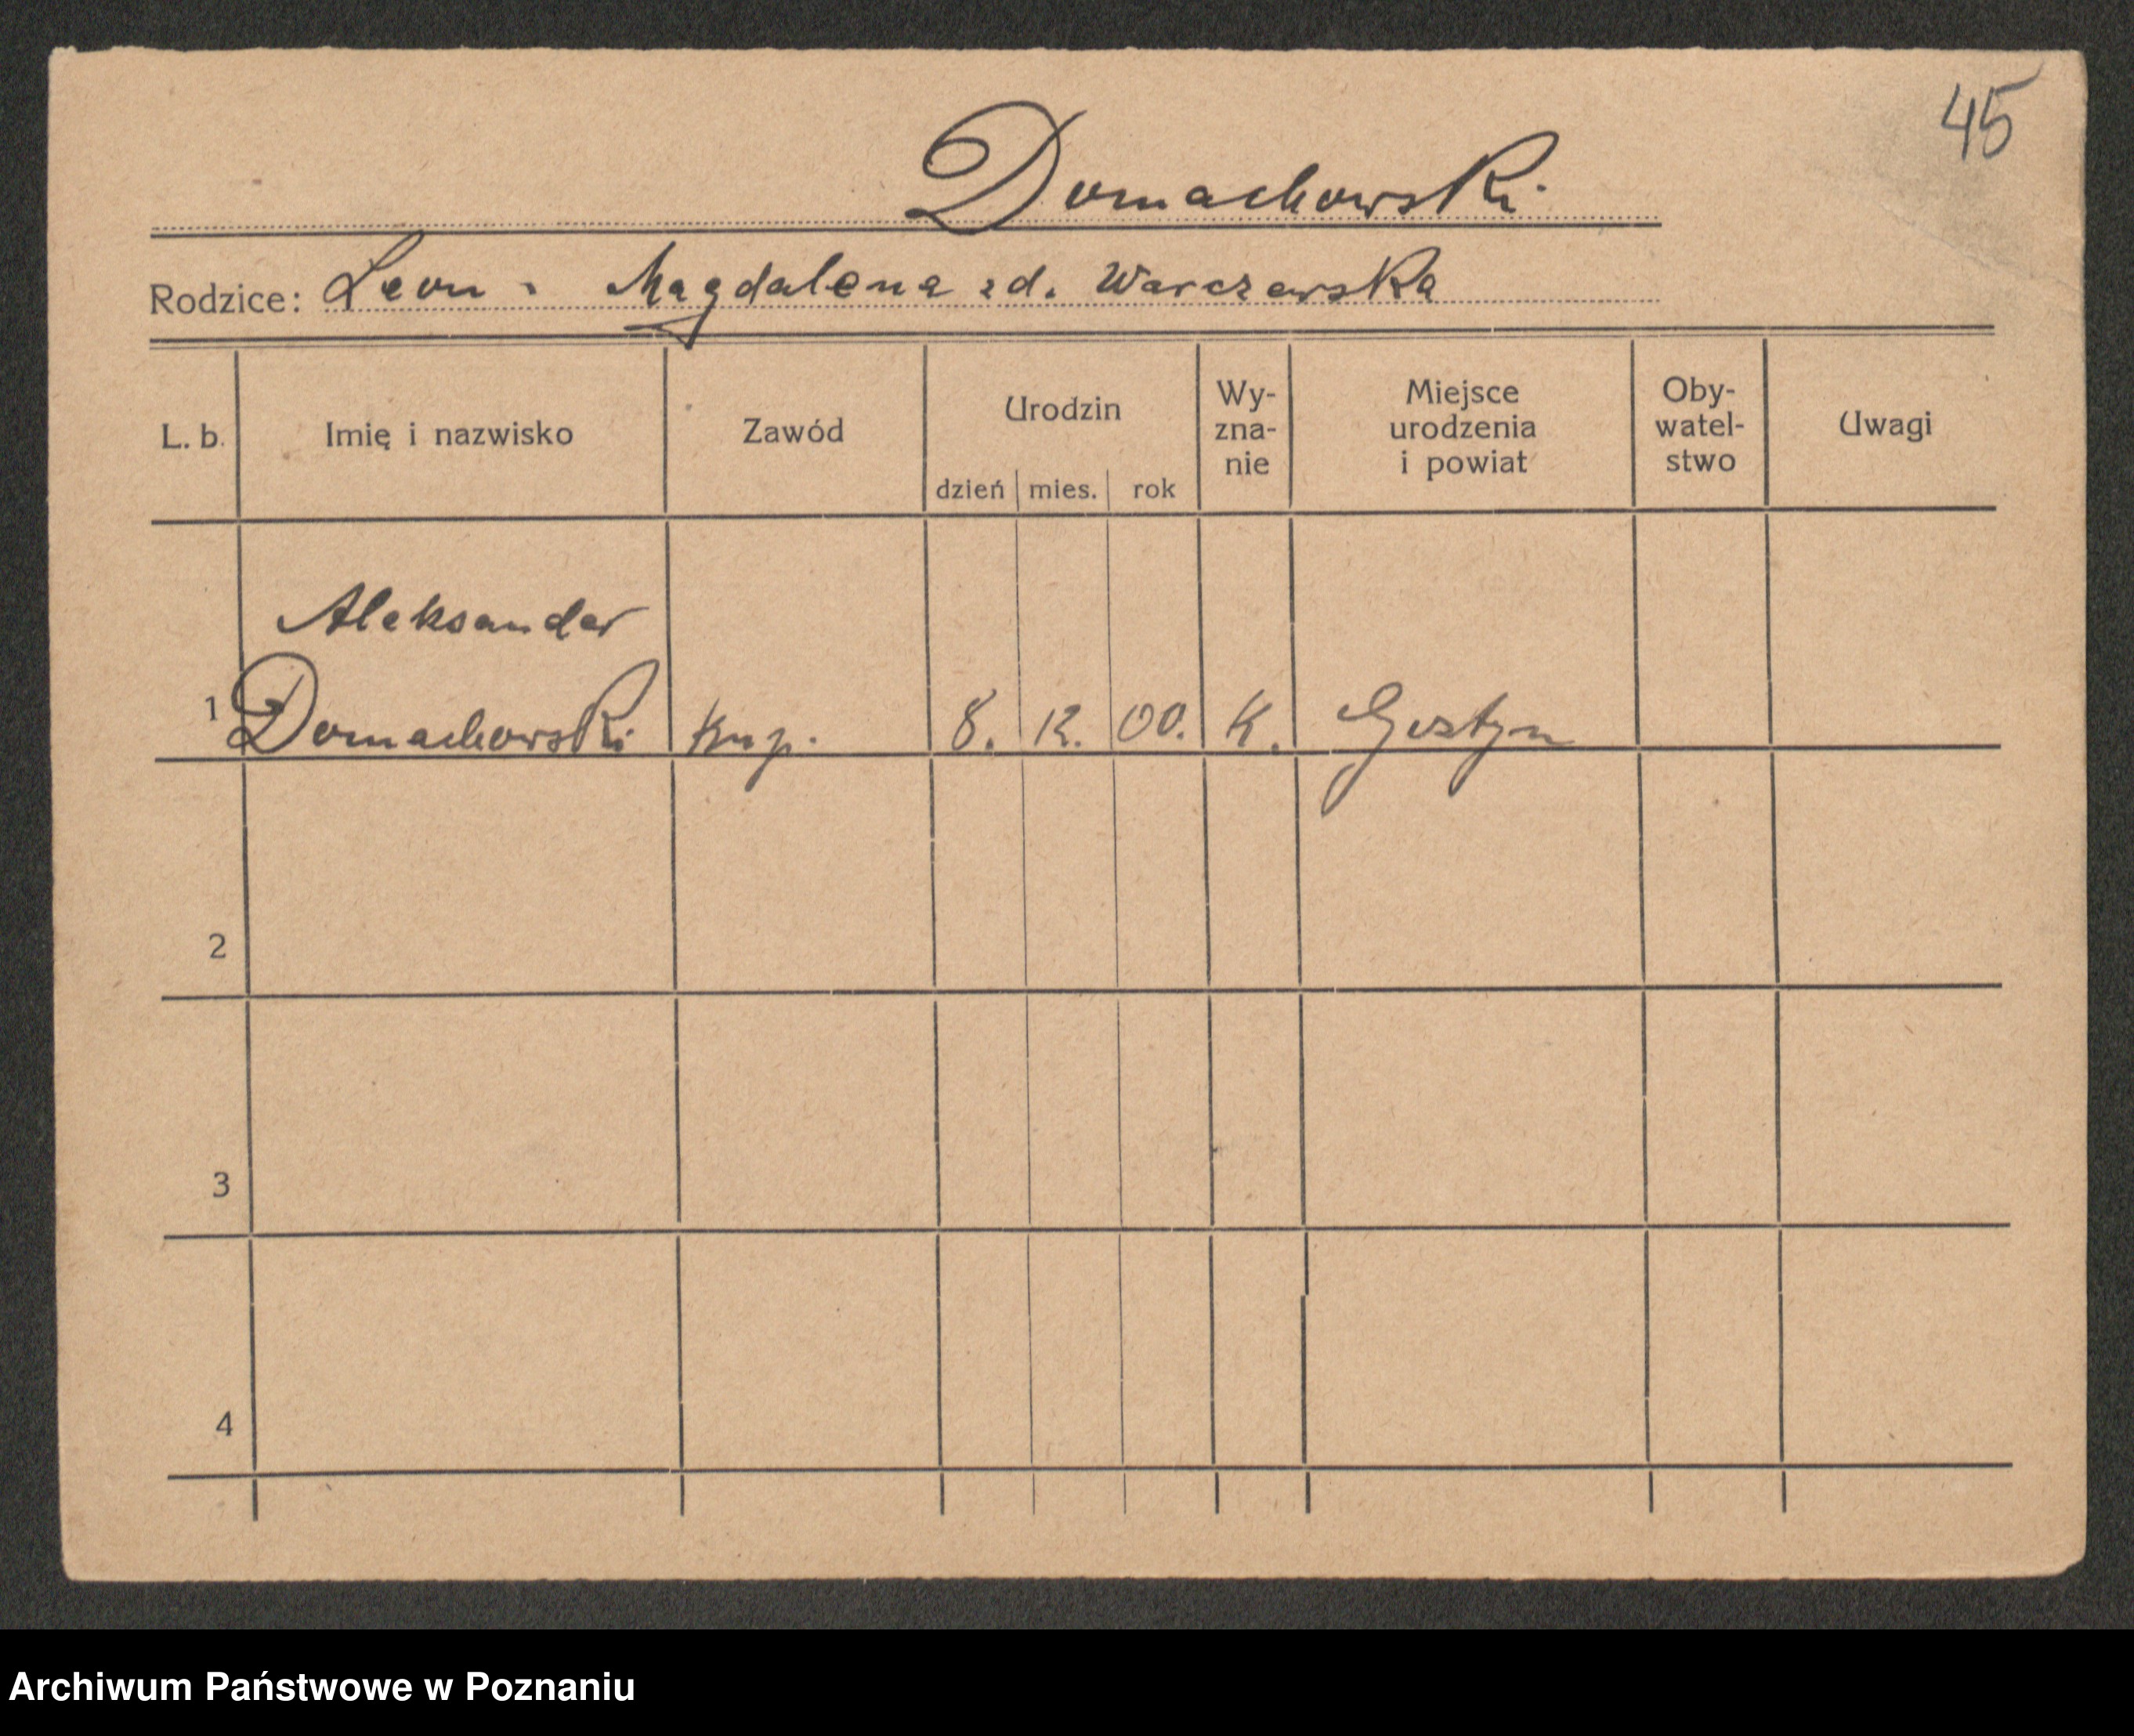 45
Domachowski
Rodzice: Leon i Magdalena zd. Warczewska
L. b.
Imię i nazwisko
Zawód
Urodzin
dzień mies. rok
Wy-
zna-
nie
Miejsce
urodzenia
i powiat
Oby-
watel-
stwo
Uwagi
Aleksander
1 Domachowski Kup. 8. 12. 00. K. Gostyn
2
3
4
Archiwum Państwowe w Poznaniu